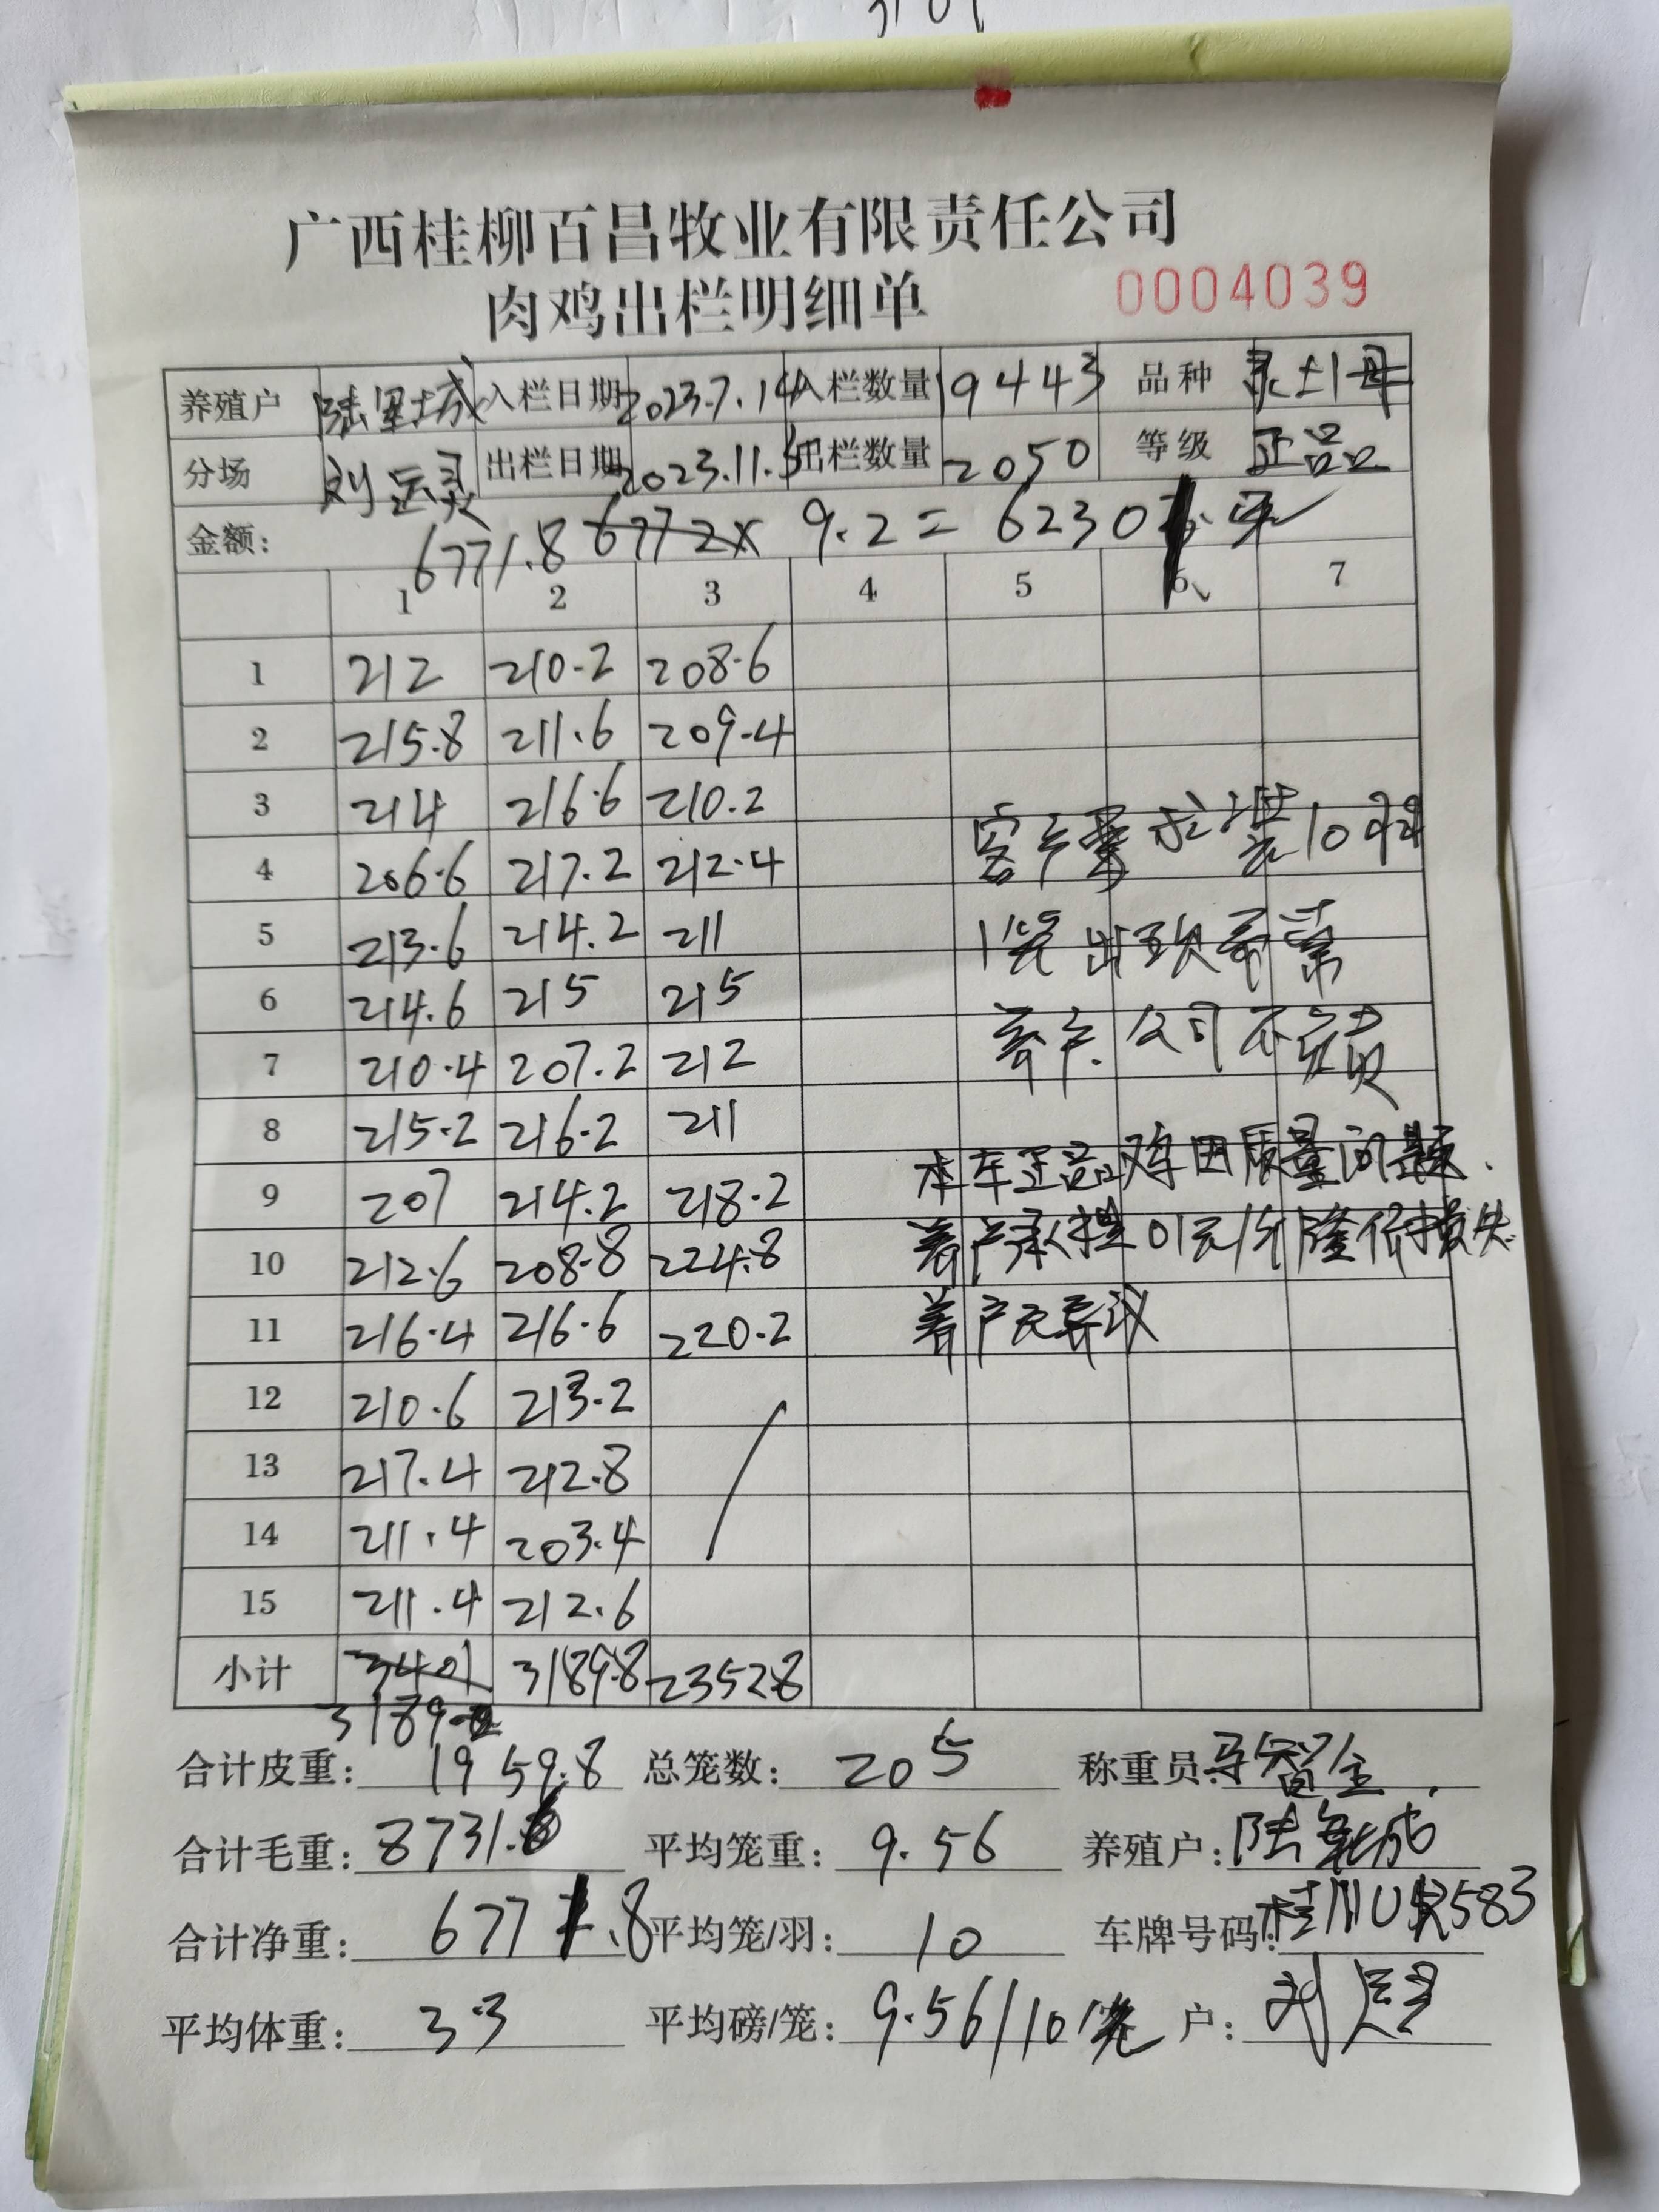 广西桂柳百昌牧业有限责任公司
肉鸡出栏明细单 0004039
养殖户 入栏日期 2023.7.14 入栏数量 19443 品种
分场 出栏日期 2023.11. 出栏数量 2050 等级 正品
金额: 6771.8 6772× 9.2= 6230
1 2 3 4 5 6 7
1 212 210.2 208.6
2 215.8 211.6 209.4
3 214 216.6 210.2
4 206.6 217.2 212.4 客户要求装10羽
5 213.6 214.2 211 1笼出现
6 214.6 215 215 养户.公司不负责
7 210.4 207.2 212
8 215.2 216.2 211 本车正品鸡因质量问题.
9 207 214.2 218.2 养户承担01元/斤降价损失.
10 212.6 208.8 224.8 养户无异议
11 216.4 216.6 220.2
12 210.6 213.2
13 217.4 212.8
14 211.4 203.4
15 211.4 212.6
小计 3401 3189.8 2352.8
3189
合计皮重: 1959.8 总笼数: 205 称重员:
合计毛重: 8731.6 平均笼重: 9.56 养殖户:
合计净重: 6771.8 平均笼/羽: 10 车牌号码:
平均体重: 3.3 平均磅/笼: 9.56/10/笼 户: